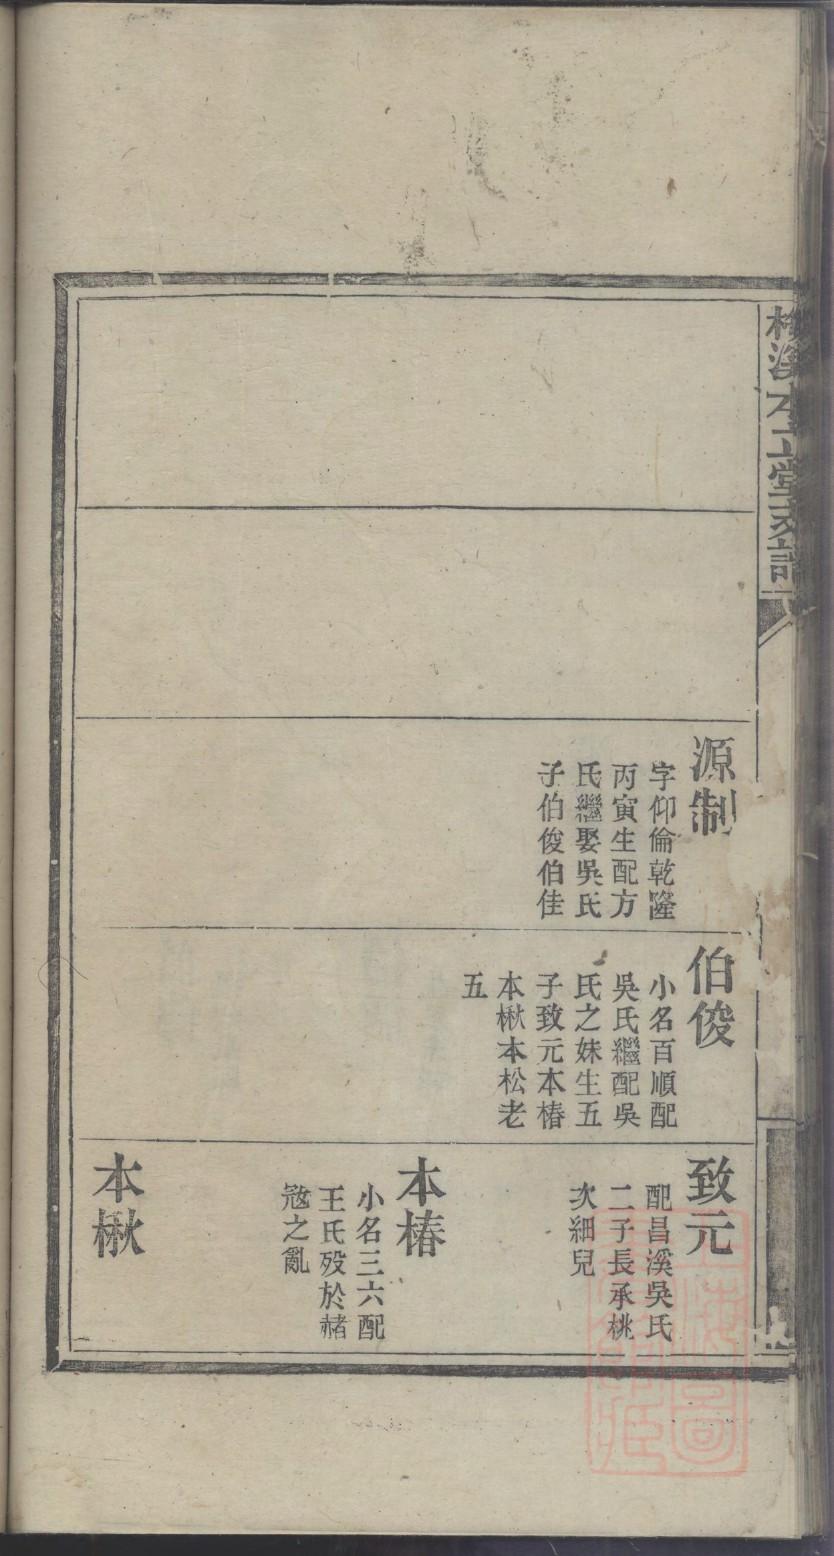 源制
字仰倫乾隆
丙寅生配方
氏繼娶吳氏
子伯俊伯佳
伯俊
小名百順配
吳氏繼配吳
氏之妹生五
子致元本椿
本楸本松老
五
致元
配昌溪吳氏
二子長承桃
次細兒
本椿
小名三六配
王氏歿於赭
寇之亂
本楸